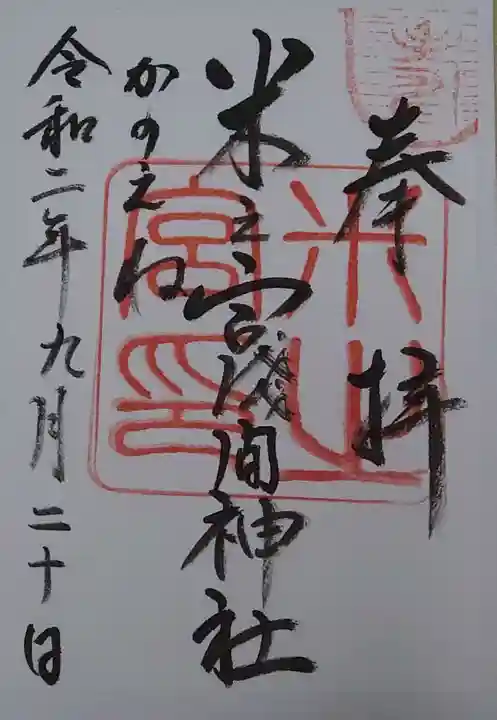 奉拝
米之宮浅間神社
かのえね
令和二年九月二十日
米山宮印